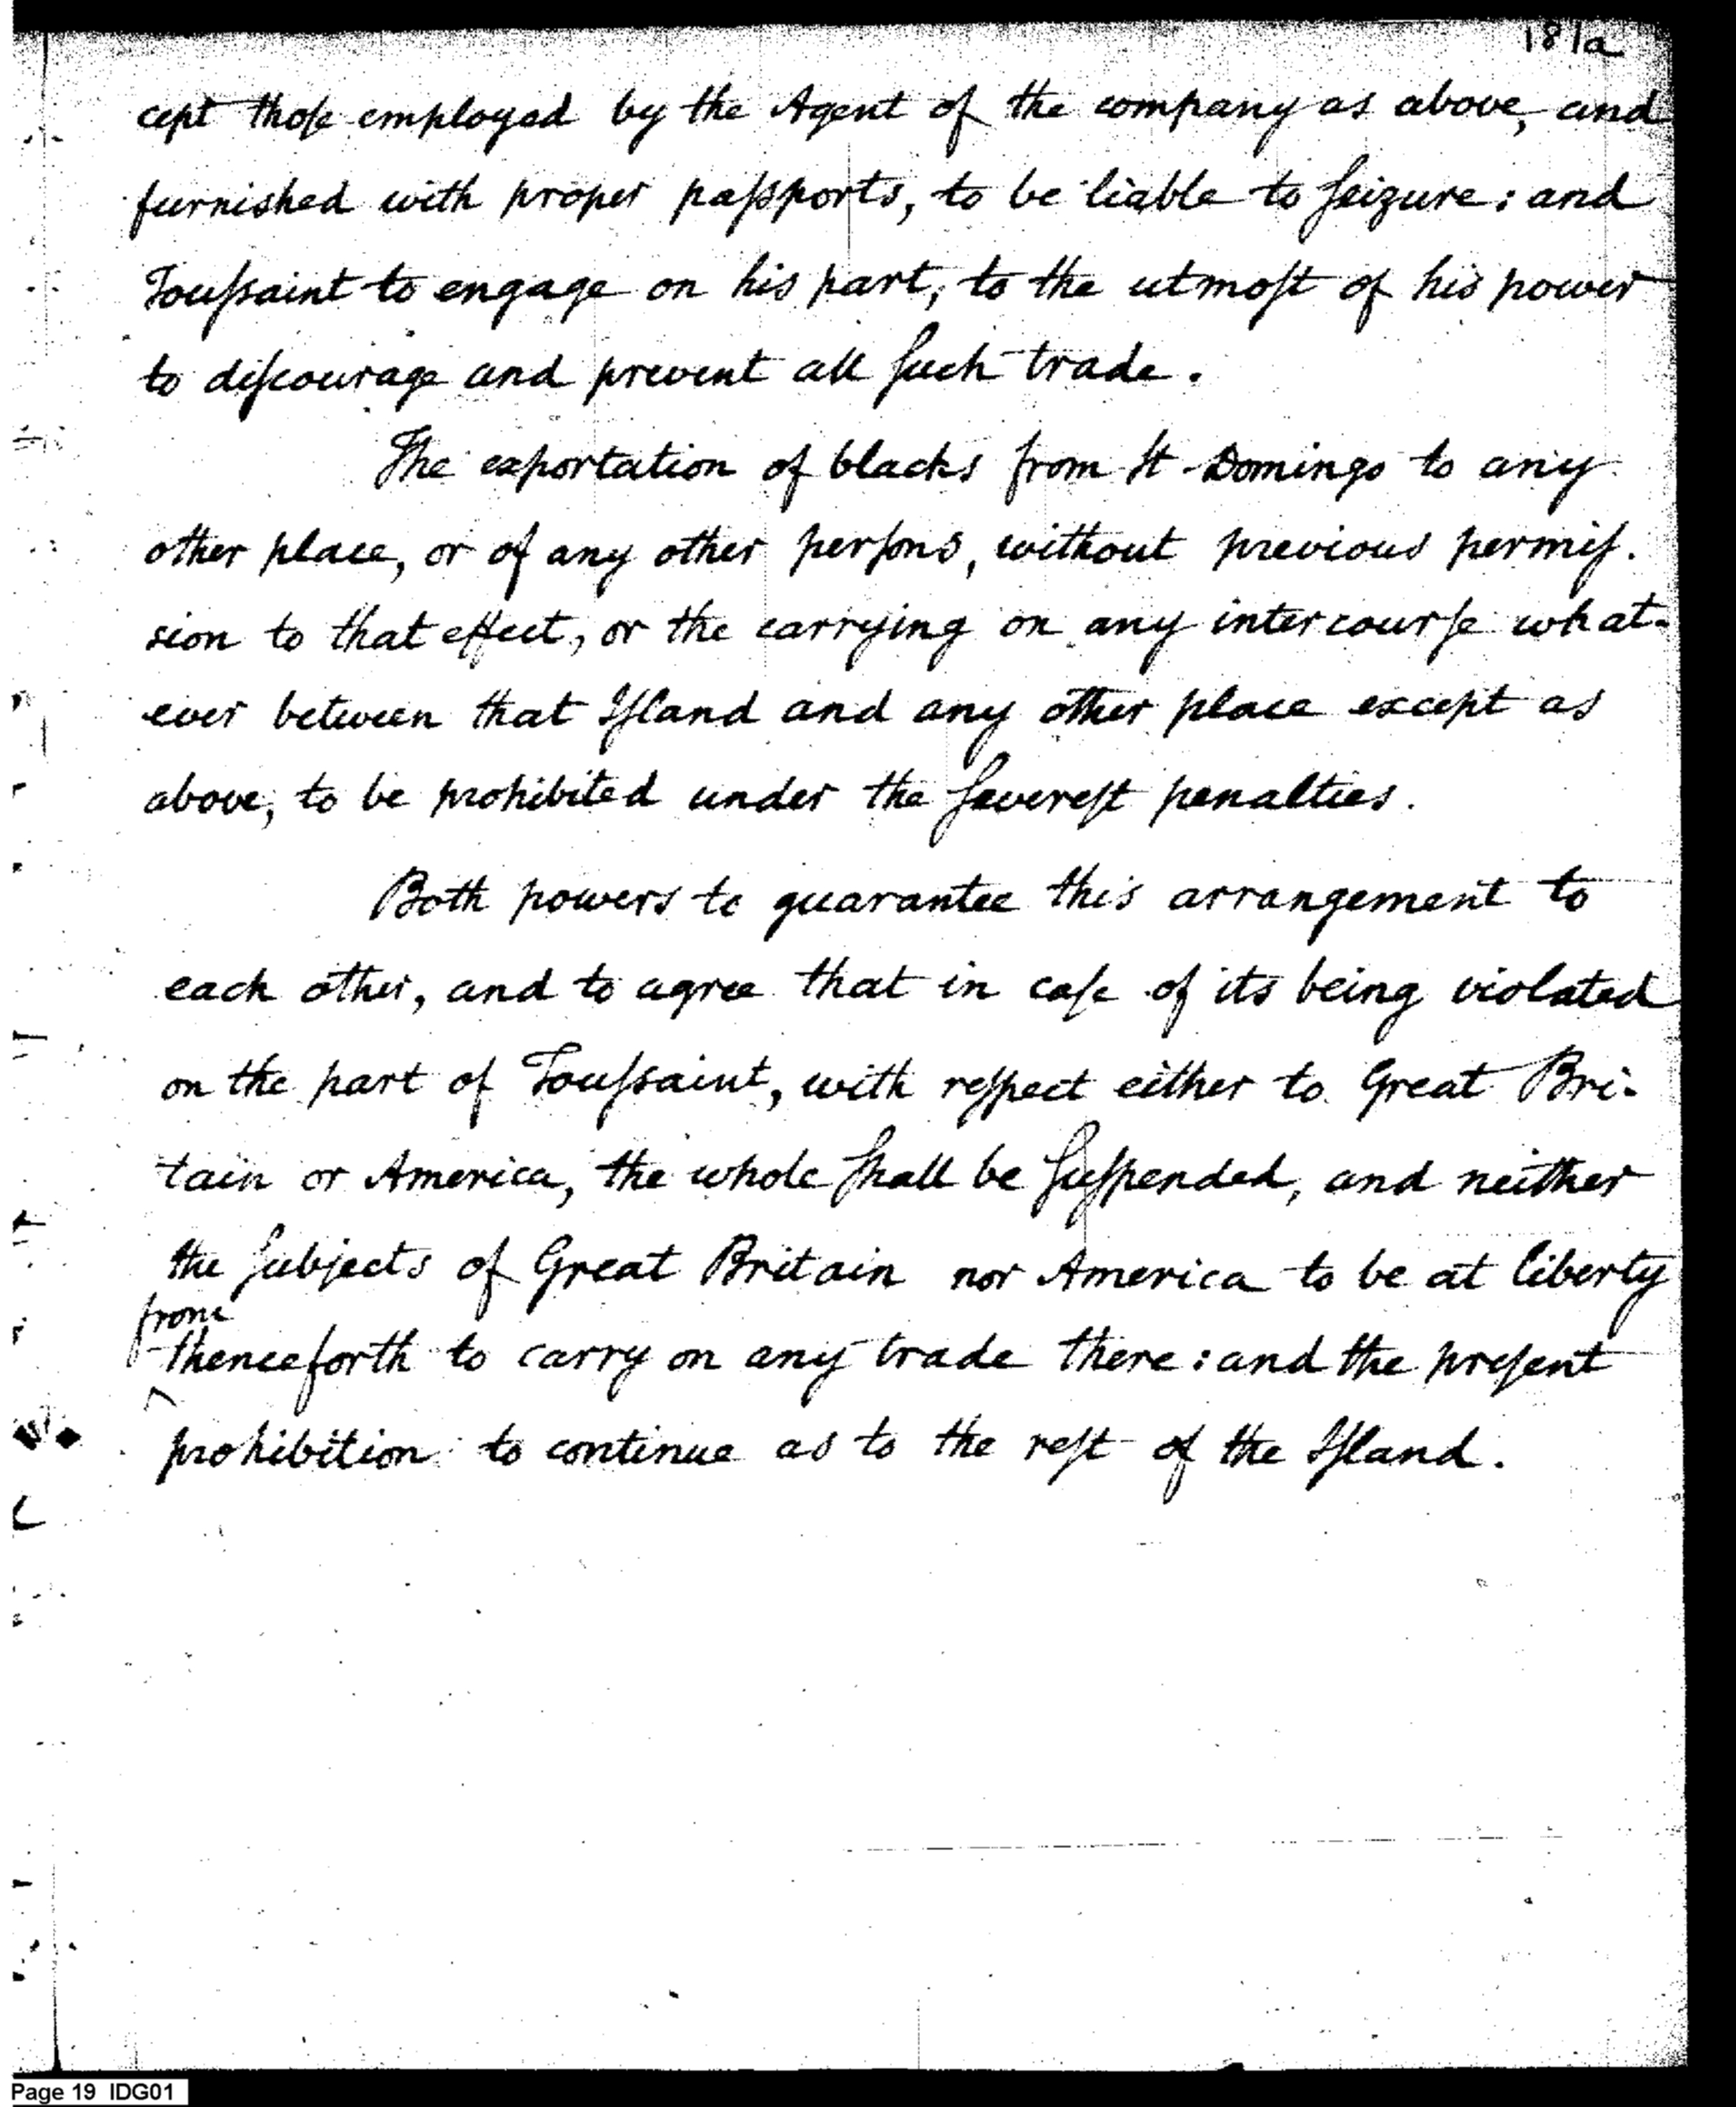 181a
cept those employed by the Agent of the company as above, and
furnished with proper passports, to be liable to seizure: and
Toussaint to engage on his part, to the utmost of his power
to discourage and prevent all such trade.
The exportation of blacks from St Domingo to any
other place, or of any other persons, without previous permis-
sion to that effect, or the carrying on any intercourse what-
ever between that Island and any other place except as
above, to be prohibited under the severest penalties.
Both powers to guarantee this arrangement to
each other, and to agree that in case of its being violated
on the part of Toussaint, with respect either to Great Bri-
tain or America, the whole shall be suspended, and neither
the subjects of Great Britain nor America to be at liberty
from
thenceforth to carry on any trade there: and the present
prohibition to continue as to the rest of the Island.
Page 19 IDG01